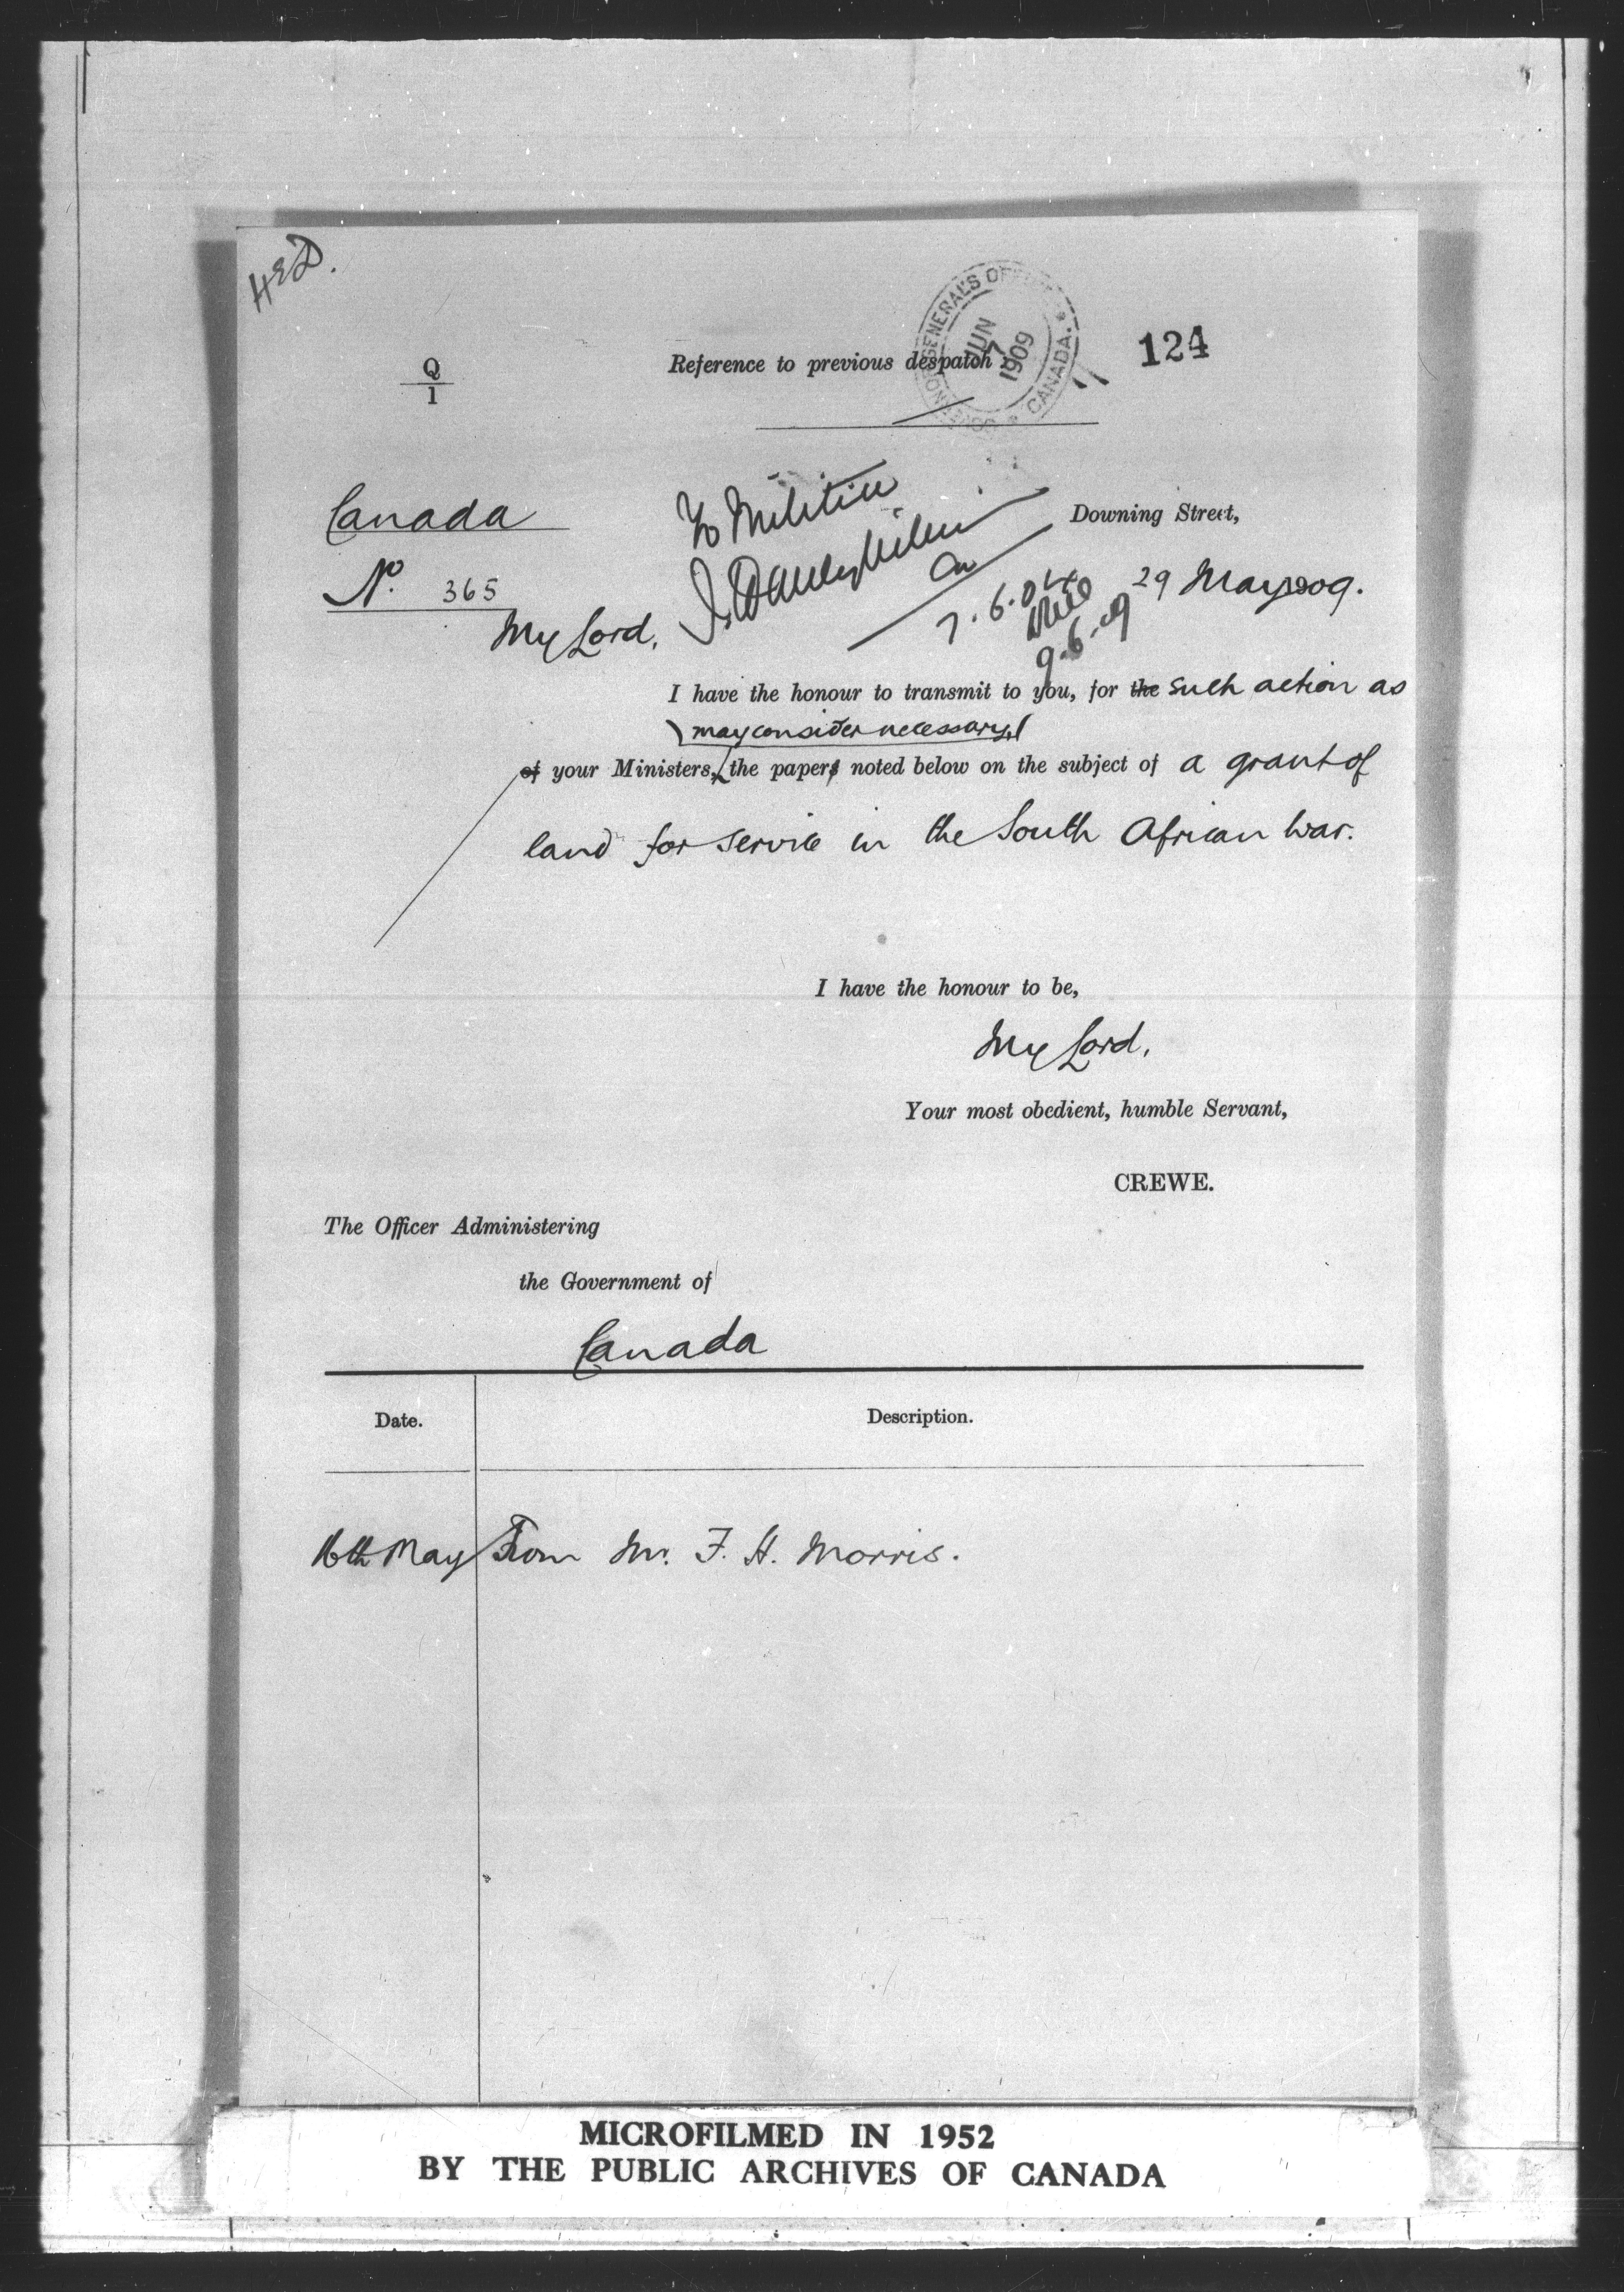 HED.
GOVERNOR GENERAL'S OFFICE * CANADA. *
JUN 7 1909
124
Q
1
Reference to previous despatch :
Canada
No. 365
To Militia
7.6.09
9.6.09
Downing Street,
29 May 1909.
My Lord,
I have the honour to transmit to you, for the such action as
may consider necessary,
of your Ministers, the papers noted below on the subject of a grant of
land for service in the South African War.
I have the honour to be,
My Lord,
Your most obedient, humble Servant,
CREWE.
The Officer Administering
the Government of
Canada
Date.
Description.
16th May From Mr. F. H. Morris.
MICROFILMED IN 1952
BY THE PUBLIC ARCHIVES OF CANADA